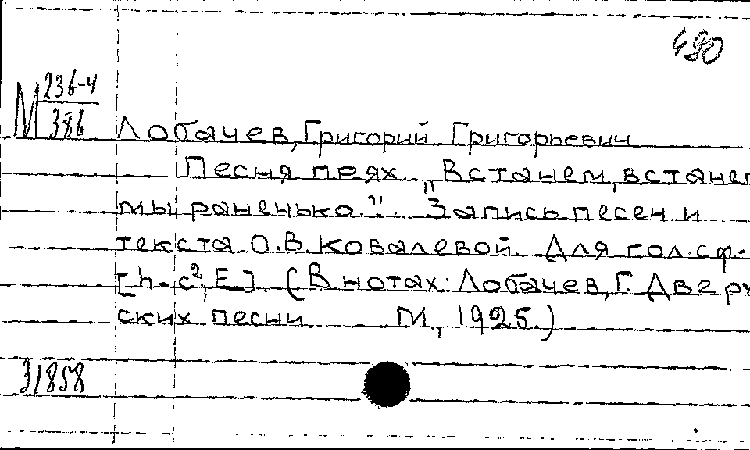 480
М 236-4
386
Лобачев, Григорий Григорьевич
Песня прях „Встанем, встанем
мы раненько." Запись песен и
текста О.В. Ковалевой. Для гол. с ф-
[h-c², E] (В нотах: Лобачев, Г. Две ру
ских песни М., 1925.)
31858